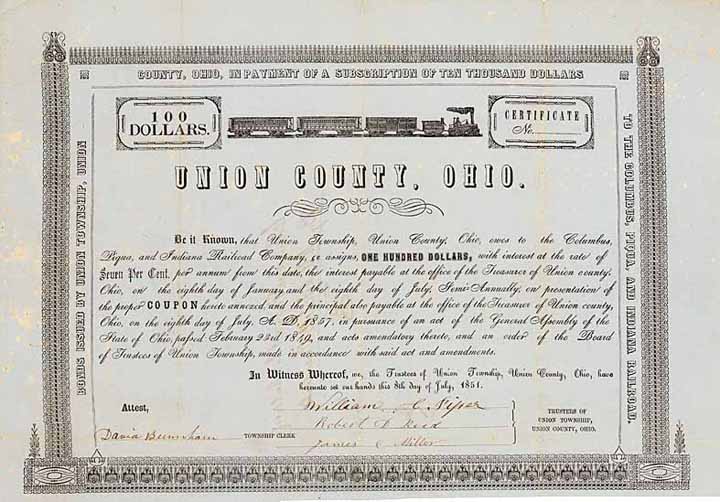 BONDS ISSUED BY UNION TOWNSHIP, UNION
COUNTY, OHIO, IN PAYMENT OF A SUBSCRIPTION OF TEN THOUSAND DOLLARS
TO THE COLUMBUS, PIQUA, AND INDIANA RAILROAD.
100
DOLLARS.
CERTIFICATE
No.
UNION COUNTY, OHIO.
Be it Known, that Union Township, Union County, Ohio, owes to the Columbus,
Piqua, and Indiana Railroad Company, or assigns, ONE HUNDRED DOLLARS, with interest at the rate of
Seven Per Cent. per annum from this date, the interest payable at the office of the Treasurer of Union county,
Ohio, on the eighth day of January and the eighth day of July, Semi-Annually, on presentation of
the proper COUPON hereto annexed, and the principal also payable at the office of the Treasurer of Union county,
Ohio, on the eighth day of July, A. D. 1857, in pursuance of an act of the General Assembly of the
State of Ohio, passed February 23rd 1849, and acts amendatory thereto, and an order of the Board
of Trustees of Union Township, made in accordance with said act and amendments.
In Witness Whereof, we, the Trustees of Union Township, Union County, Ohio, have
hereunto set our hands this 8th day of July, 1851.
Attest,
William
Robert D Reed
James C Miller
TRUSTEES OF
UNION TOWNSHIP,
UNION COUNTY, OHIO.
David Burnham TOWNSHIP CLERK